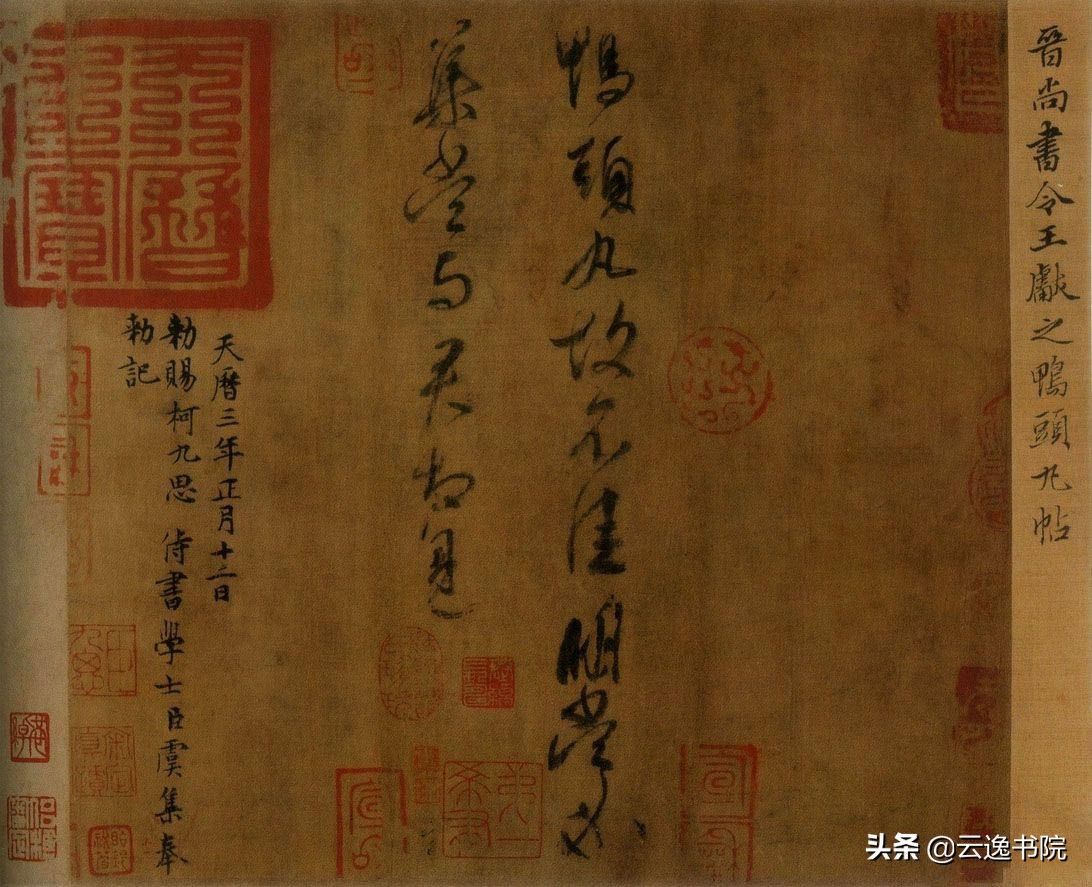 晉尚書令王獻之鴨頭丸帖
鴨頭丸故不佳明當必
集當与君相見
天曆三年正月十二日
勑賜柯九思侍書學士臣虞集奉
勑記
天曆之寶
头条 @云逸书院